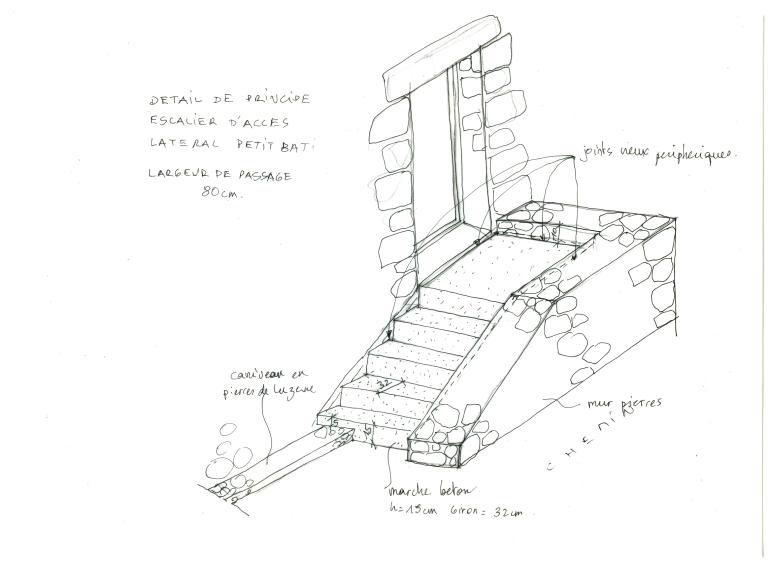 DETAIL DE PRINCIPE
ESCALIER D'ACCES
LATERAL PETIT BATI
LARGEUR DE PASSAGE
80cm.
joints creux peripheriques.
caniveau en
pierres de Luzerne
32
15
mur pierres
CHEMIN
marche beton
h=15cm Giron = 32cm.